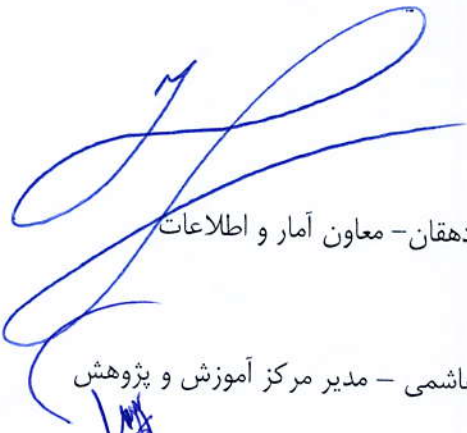 دهقان- معاون آمار و اطلاعات
هاشمی – مدیر مرکز آموزش و پژوهش